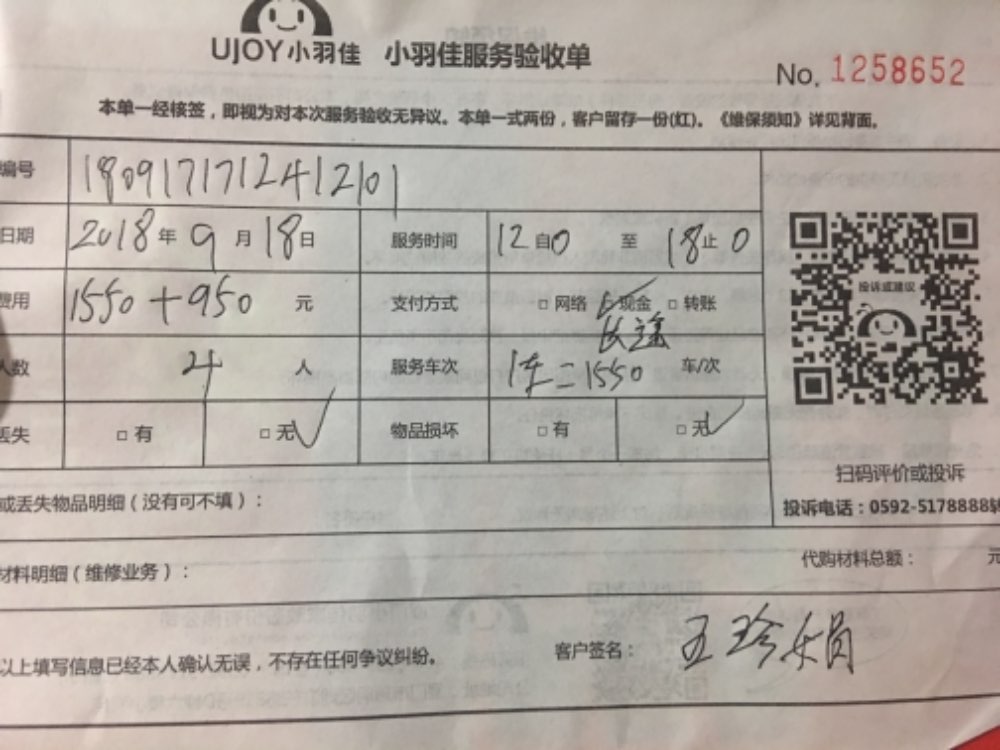 UJOY小羽佳 小羽佳服务验收单
No. 1258652
本单一经核签，即视为对本次服务验收无异议。本单一式两份，客户留存一份(红)。《维保须知》详见背面。
编号 1809171712412101
日期 2018年9月18日 服务时间 12自0 至 18止0
费用 1550+950 元 支付方式 □网络 ☑现金 □转账
长途
人数 4 人 服务车次 1车=1550 车/次
丢失 □有 □无✓ 物品损坏 □有 □无✓
投诉或建议
扫码评价或投诉
投诉电话：0592-5178888转
或丢失物品明细（没有可不填）：
代购材料总额： 元
材料明细（维修业务）：
以上填写信息已经本人确认无误，不存在任何争议纠纷。 客户签名： 王珍娟